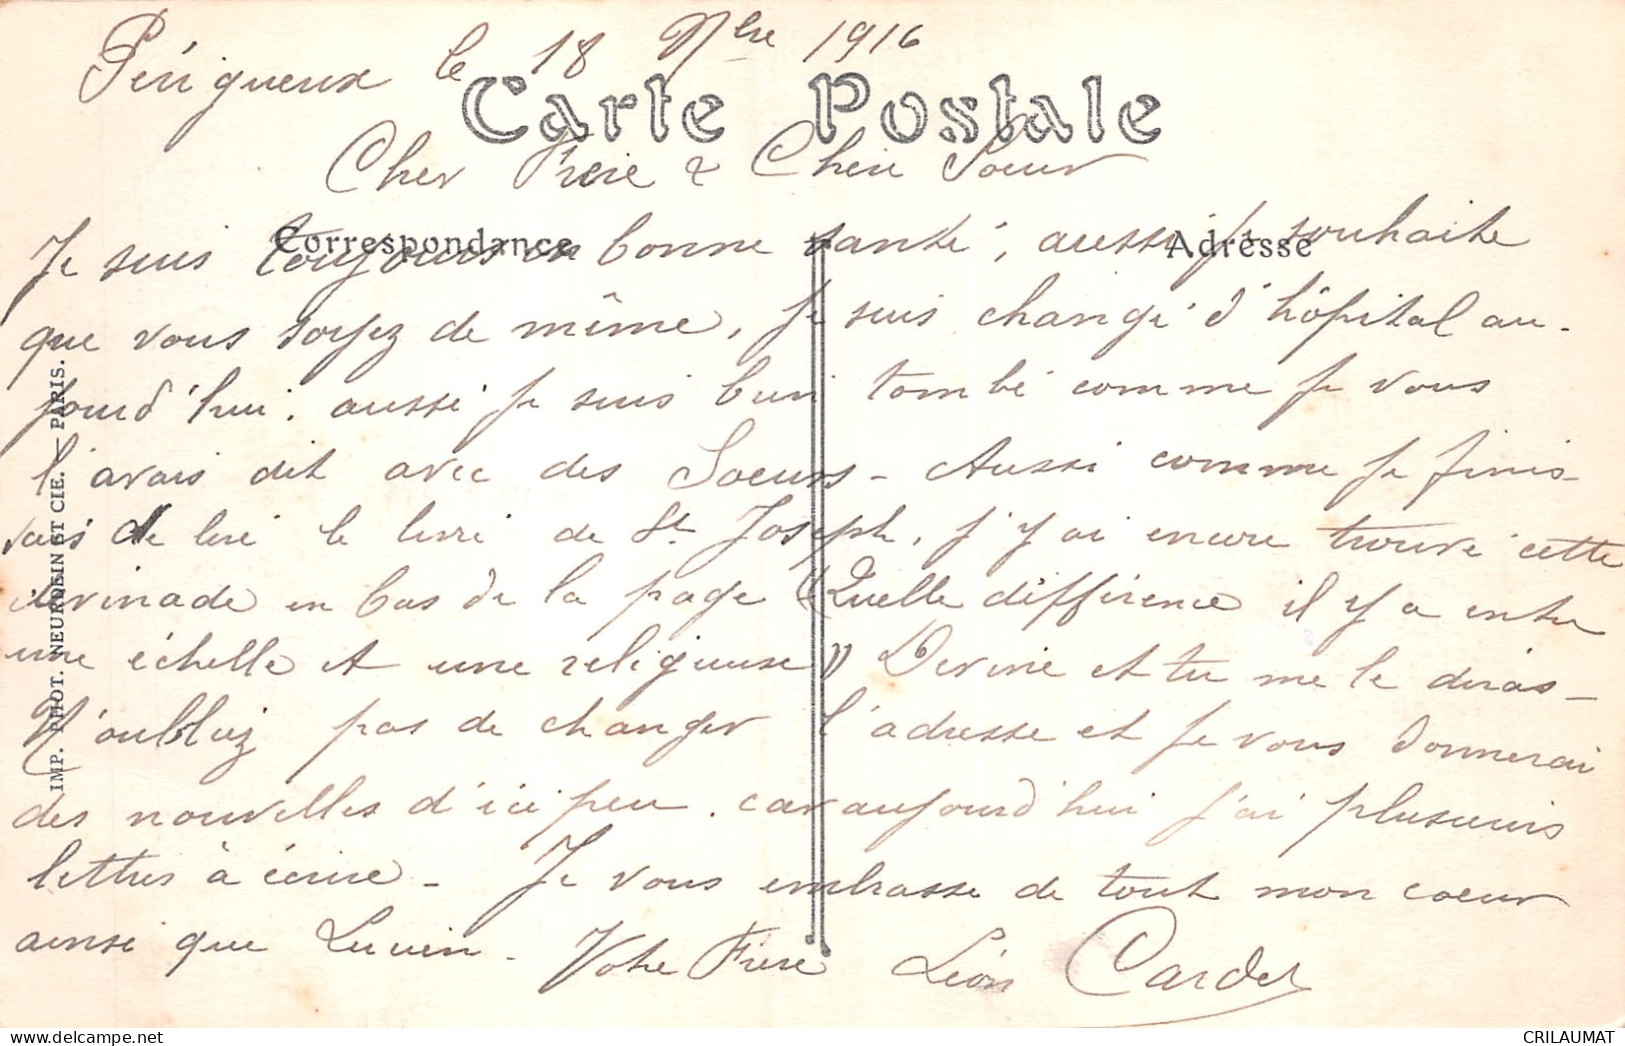 Périgueux le 18 Nbre 1916
Carte Postale
Cher Frère & Chère Soeur
Correspondance
Adresse
Je suis toujours en bonne santé, aussi je souhaite
que vous soyez de même, Je suis changé d'hôpital au-
jourd'hui. aussi je suis bien tombé comme je vous
l'avais dit avec des Soeurs - Aussi comme je finis-
sais de lire le livre de St Joseph, j'y ai encore trouvé cette
devinade en bas de la page "Quelle différence il y a entre
une échelle et une religieuse" Devine et tu me le diras -
N'oubliez pas de changer l'adresse et je vous donnerai
des nouvelles d'ici peu. car aujourd'hui j'ai plusieurs
lettres à écrire - Je vous embrasse de tout mon coeur
ainsi que Lucien - Votre Frère Léon Cardet
IMP. PHOT. NEURDEIN ET CIE. — PARIS.
CRILAUMAT